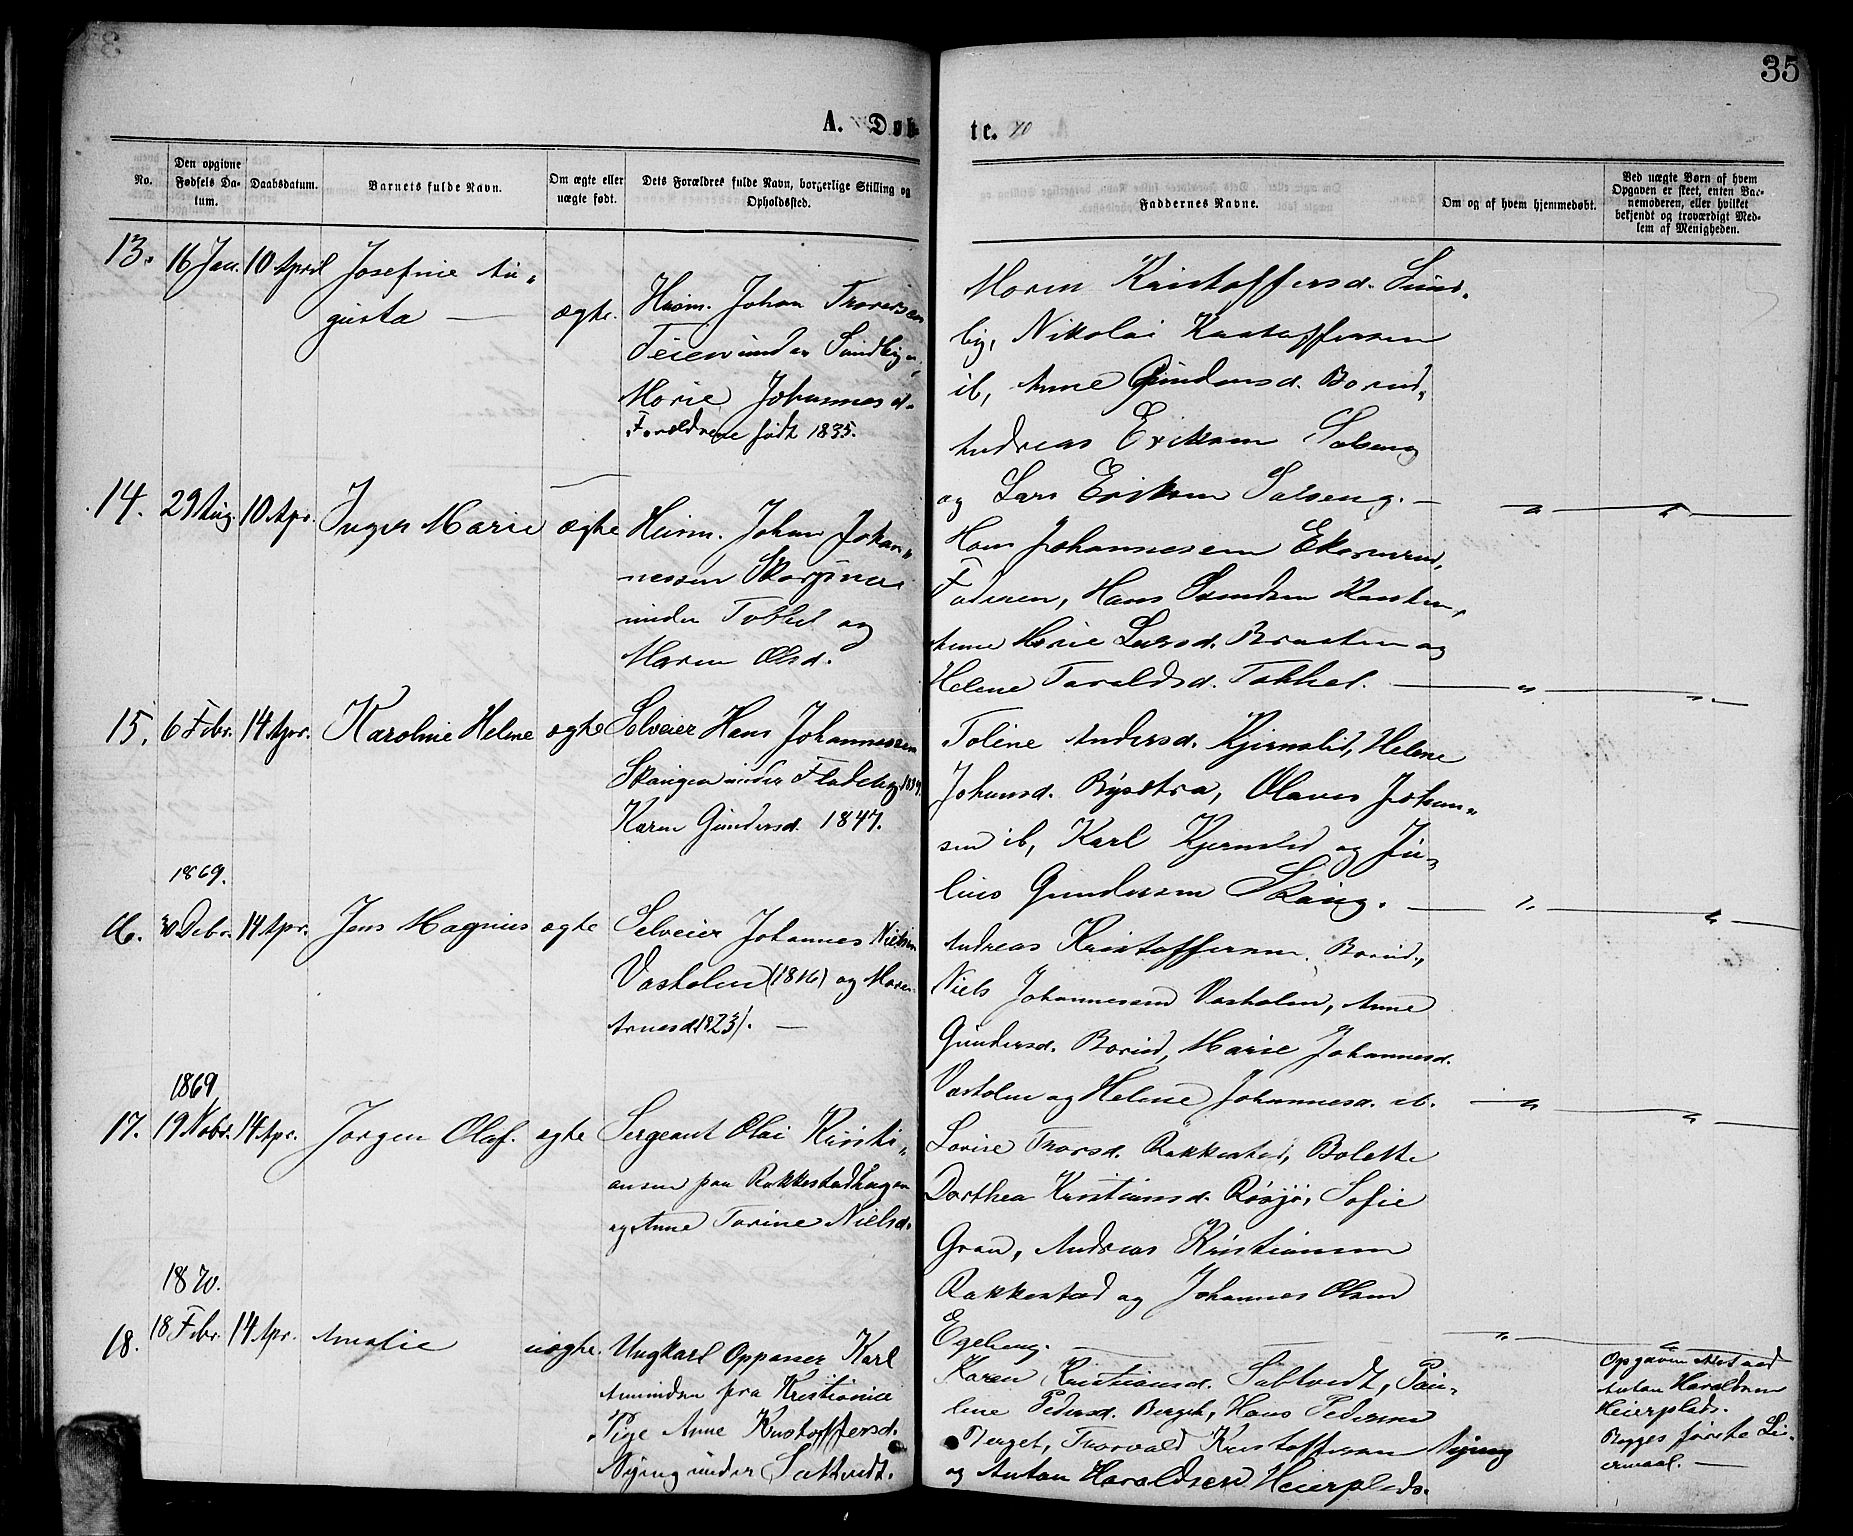 35
A. Døbte. 70
No.
Den opgivne Fødsels Datum.
Daabsdatum.
Barnets fulde Navn.
Om ægte eller uægte født.
Dets Forældres fulde Navn, borgerlige Stilling og Opholdssted.
Faddernes Navne.
Om og af hvem hjemmedøbt.
Ved uægte Børn af hvem Opgaven er skeet, enten Barnemoderen, eller hvilket bekjendt og troværdigt Medlem af Menigheden.
13. 16 Jan. 10 April Josefine Au-
gusta — ægte.
Huusm. Johan
under Sundby
Marie Johannesd.
Forældrene født 1835.
Maren Kristoffersd. Sund-
by, Nikolai Kristoffersen
ib, Anne Gundersd. Borud,
Andreas Eriksen Solseng
og Lars Eriksen Solseng. —
14. 29 Aug. 10 Apr. Inger Marie ægte
Huusm. Johan Johan-
nessen
under og
Maren Olsd.
Hans Johannesen Ekornrud,
Faderen, Hans
Anne Marie Larsd. Braaten og
Helene Taraldsd.
15. 6 Febr. 14 Apr. Karoline Helene ægte
Selveier Hans Johannessen
Skaugen under Fladeby
Karen Gundersd. 1847.
Toline Andersd. Kjernslid, Helene
Johansd. Bysætra, Olaves Johan-
sen ib, Karl Kjernslid og Ju-
lius Gundersen Skaug. —
1869.
16. 30 Debr. 14 Apr. Jens Magnus ægte
Selveier Johannes Nielsen
Vasholen (1816) og Maren
Arnesd. 1823). —
Andreas Kristoffersen, Borud,
Niels Johannessen Vasholen, Anne
Gundersd. Borud, Marie Johannesd.
Vasholen og Helene Johannesd. ib.
1869
17. 19 Nobr. 14 Apr. Jørgen Olaf. ægte
Sergeant Olai Kristi-
ansen paa Rakkestadhagen
og Anne Torine Nielsd.
Lovise Thorsd. Rakkestad, Bolette
Dorthea Kristiansd. Røsjø, Sofie
Gran, Andreas Kristiansen
Rakkestad og Johannes Olsen
Egeberg. —
1870.
18. 18 Febr. 14 Apr. Amalie uægte.
Ungkarl Oppasser Karl
Amundsen fra Kristiania
Pige Anne Kristoffersd.
Nyeng under
Karen Kristiansd. Pau-
line Pedersd. Berget, Hans Pedersen
Berget, Thorvald Kristoffersen Nyeng
og Anton Haraldsen Heierplads.
Opgaven
Anton Haraldsen
Heierplads.
Begges første Lei-
ermaal. —